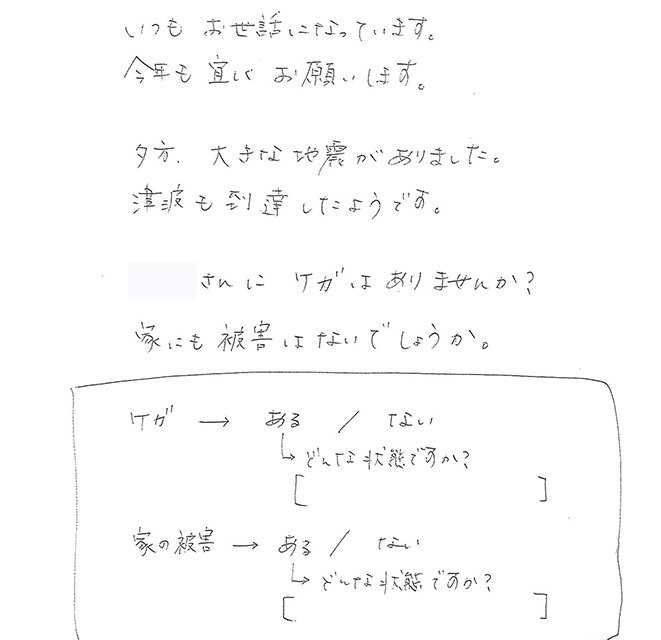 いつも お世話になっています。
今年も 宜しく お願いします。
夕方、大きな地震がありました。
津波も到達したようです。
さんに ケガはありませんか?
家にも被害はないでしょうか。
ケガ → ある / ない
↳ どんな状態ですか?
[ ]
家の被害 → ある / ない
↳ どんな状態ですか?
[ ]